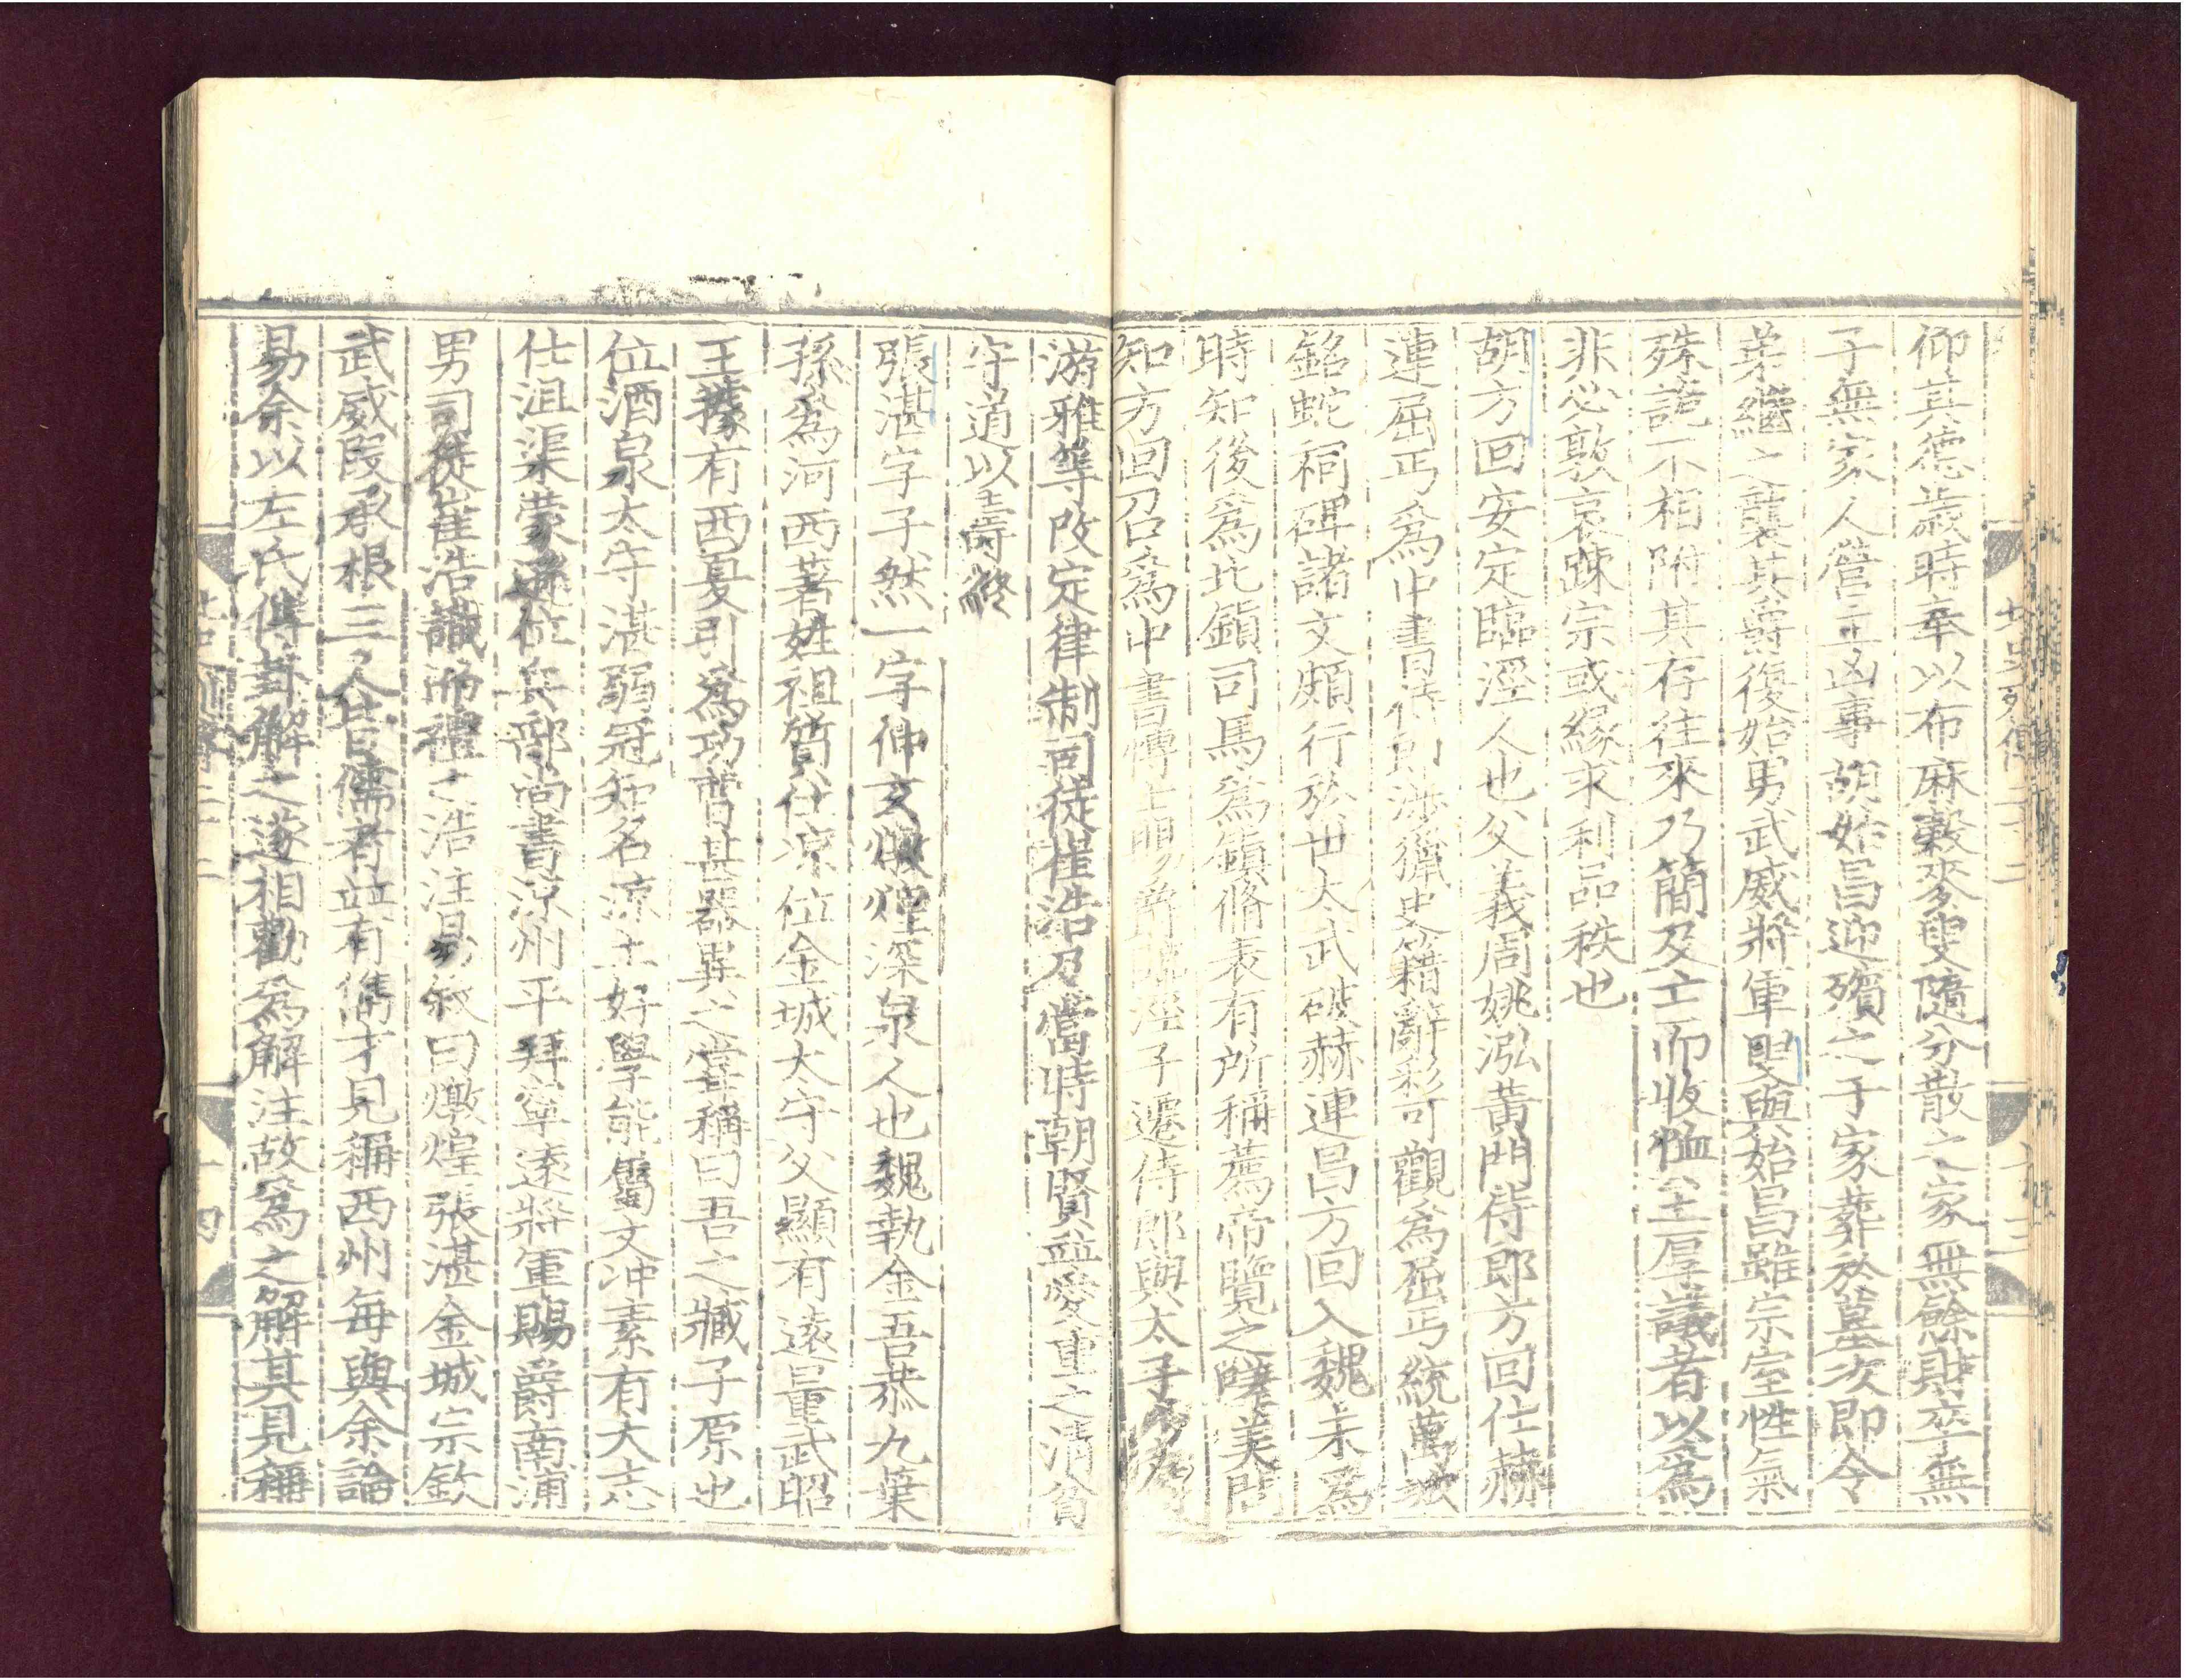 仰其德歲時奉以布麻穀麥叟隨分散之家無餘財卒無
子無家人營主凶事胡始昌迎殯之于家葬於墓次即令
弟繼之襲其爵復始男武威將軍叟與始昌雖宗室性氣
殊詭不相附其存往來乃簡及亡而收恤至厚議者以為
非必敦哀疎宗或緣求利品秩也
胡方回安定臨涇人也父義周姚泓黃門侍郎方回仕赫
連屈丐為中書侍郎涉獵史籍辭彩可觀為屈丐統萬城
銘蛇祠碑諸文頗行於世太武破赫連昌方回入魏未為
時知後為北鎮司馬為鎮脩表有所稱薦帝覽之嗟美問
知方回召為中書博士賜爵臨涇子遷侍郎與太子
游雅等改定律制司徒崔浩及當時朝賢並愛重之清貧
守道以壽終
張湛字子然一字仲玄燉煌深泉人也魏執金吾恭九葉
孫為河西著姓祖質仕涼位金城太守父顯有遠量武昭
王據有西夏引為功曹甚器異之嘗稱曰吾之臧子原也
位酒泉太守湛弱冠知名涼土好學能屬文沖素有大志
仕沮渠蒙遜位兵部尚書涼州平拜寧遠將軍賜爵南浦
男司徒崔浩識而禮之浩注易敘曰燉煌張湛金城宗欽
武威段承根三人皆儒者並有儁才見稱西州每與余論
易余以左氏傳卦解之遂相勸為解注故為之解其見稱